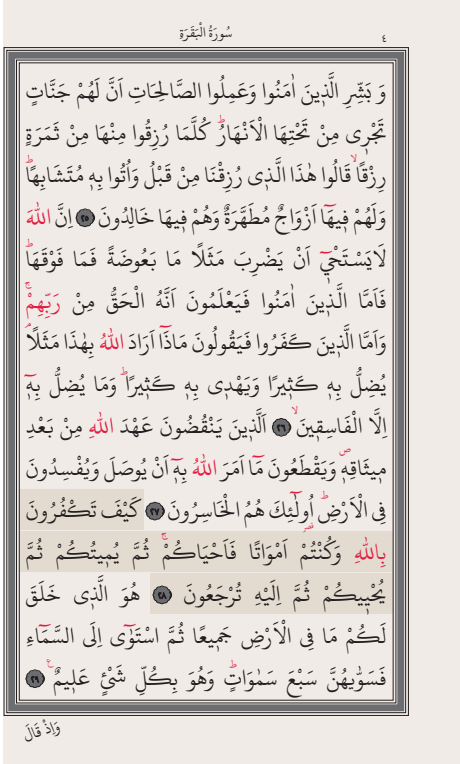 سُورَةُ الْبَقَرَةِ ٤
وَ بَشِّرِ الَّذ۪ينَ اٰمَنُوا وَعَمِلُوا الصَّالِحَاتِ اَنَّ لَهُمْ جَنَّاتٍ
تَجْر۪ي مِنْ تَحْتِهَا الْاَنْهَارُۜ كُلَّمَا رُزِقُوا مِنْهَا مِنْ ثَمَرَةٍ
رِزْقًاۙ قَالُوا هٰذَا الَّذ۪ي رُزِقْنَا مِنْ قَبْلُ وَاُتُوا بِه۪ مُتَشَابِهًاۜ
وَلَهُمْ ف۪يهَٓا اَزْوَاجٌ مُطَهَّرَةٌ وَهُمْ ف۪يهَا خَالِدُونَ ٢٥ اِنَّ اللّٰهَ
لَايَسْتَحْي۪ٓ اَنْ يَضْرِبَ مَثَلًا مَا بَعُوضَةً فَمَا فَوْقَهَاۜ
فَاَمَّا الَّذ۪ينَ اٰمَنُوا فَيَعْلَمُونَ اَنَّهُ الْحَقُّ مِنْ رَبِّهِمْۚ
وَاَمَّا الَّذ۪ينَ كَفَرُوا فَيَقُولُونَ مَاذَٓا اَرَادَ اللّٰهُ بِهٰذَا مَثَلًاۢ
يُضِلُّ بِه۪ كَث۪يرًا وَيَهْد۪ي بِه۪ كَث۪يرًاۜ وَمَا يُضِلُّ بِه۪ٓ
اِلَّا الْفَاسِق۪ينَۙ ٢٦ اَلَّذ۪ينَ يَنْقُضُونَ عَهْدَ اللّٰهِ مِنْ بَعْدِ
م۪يثَاقِه۪ۖ وَيَقْطَعُونَ مَٓا اَمَرَ اللّٰهُ بِه۪ٓ اَنْ يُوصَلَ وَيُفْسِدُونَ
فِي الْاَرْضِۜ اُو۬لٰٓئِكَ هُمُ الْخَاسِرُونَ ٢٧ كَيْفَ تَكْفُرُونَ
بِاللّٰهِ وَكُنْتُمْ اَمْوَاتًا فَاَحْيَاكُمْۚ ثُمَّ يُم۪يتُكُمْ ثُمَّ
يُحْي۪يكُمْ ثُمَّ اِلَيْهِ تُرْجَعُونَ ٢٨ هُوَ الَّذ۪ي خَلَقَ
لَكُمْ مَا فِي الْاَرْضِ جَم۪يعًا ثُمَّ اسْتَوٰٓى اِلَى السَّمَٓاءِ
فَسَوّٰيهُنَّ سَبْعَ سَمٰوَاتٍۜ وَهُوَ بِكُلِّ شَيْءٍ عَل۪يمٌ۟ ٢٩
وَاِذْ قَالَ